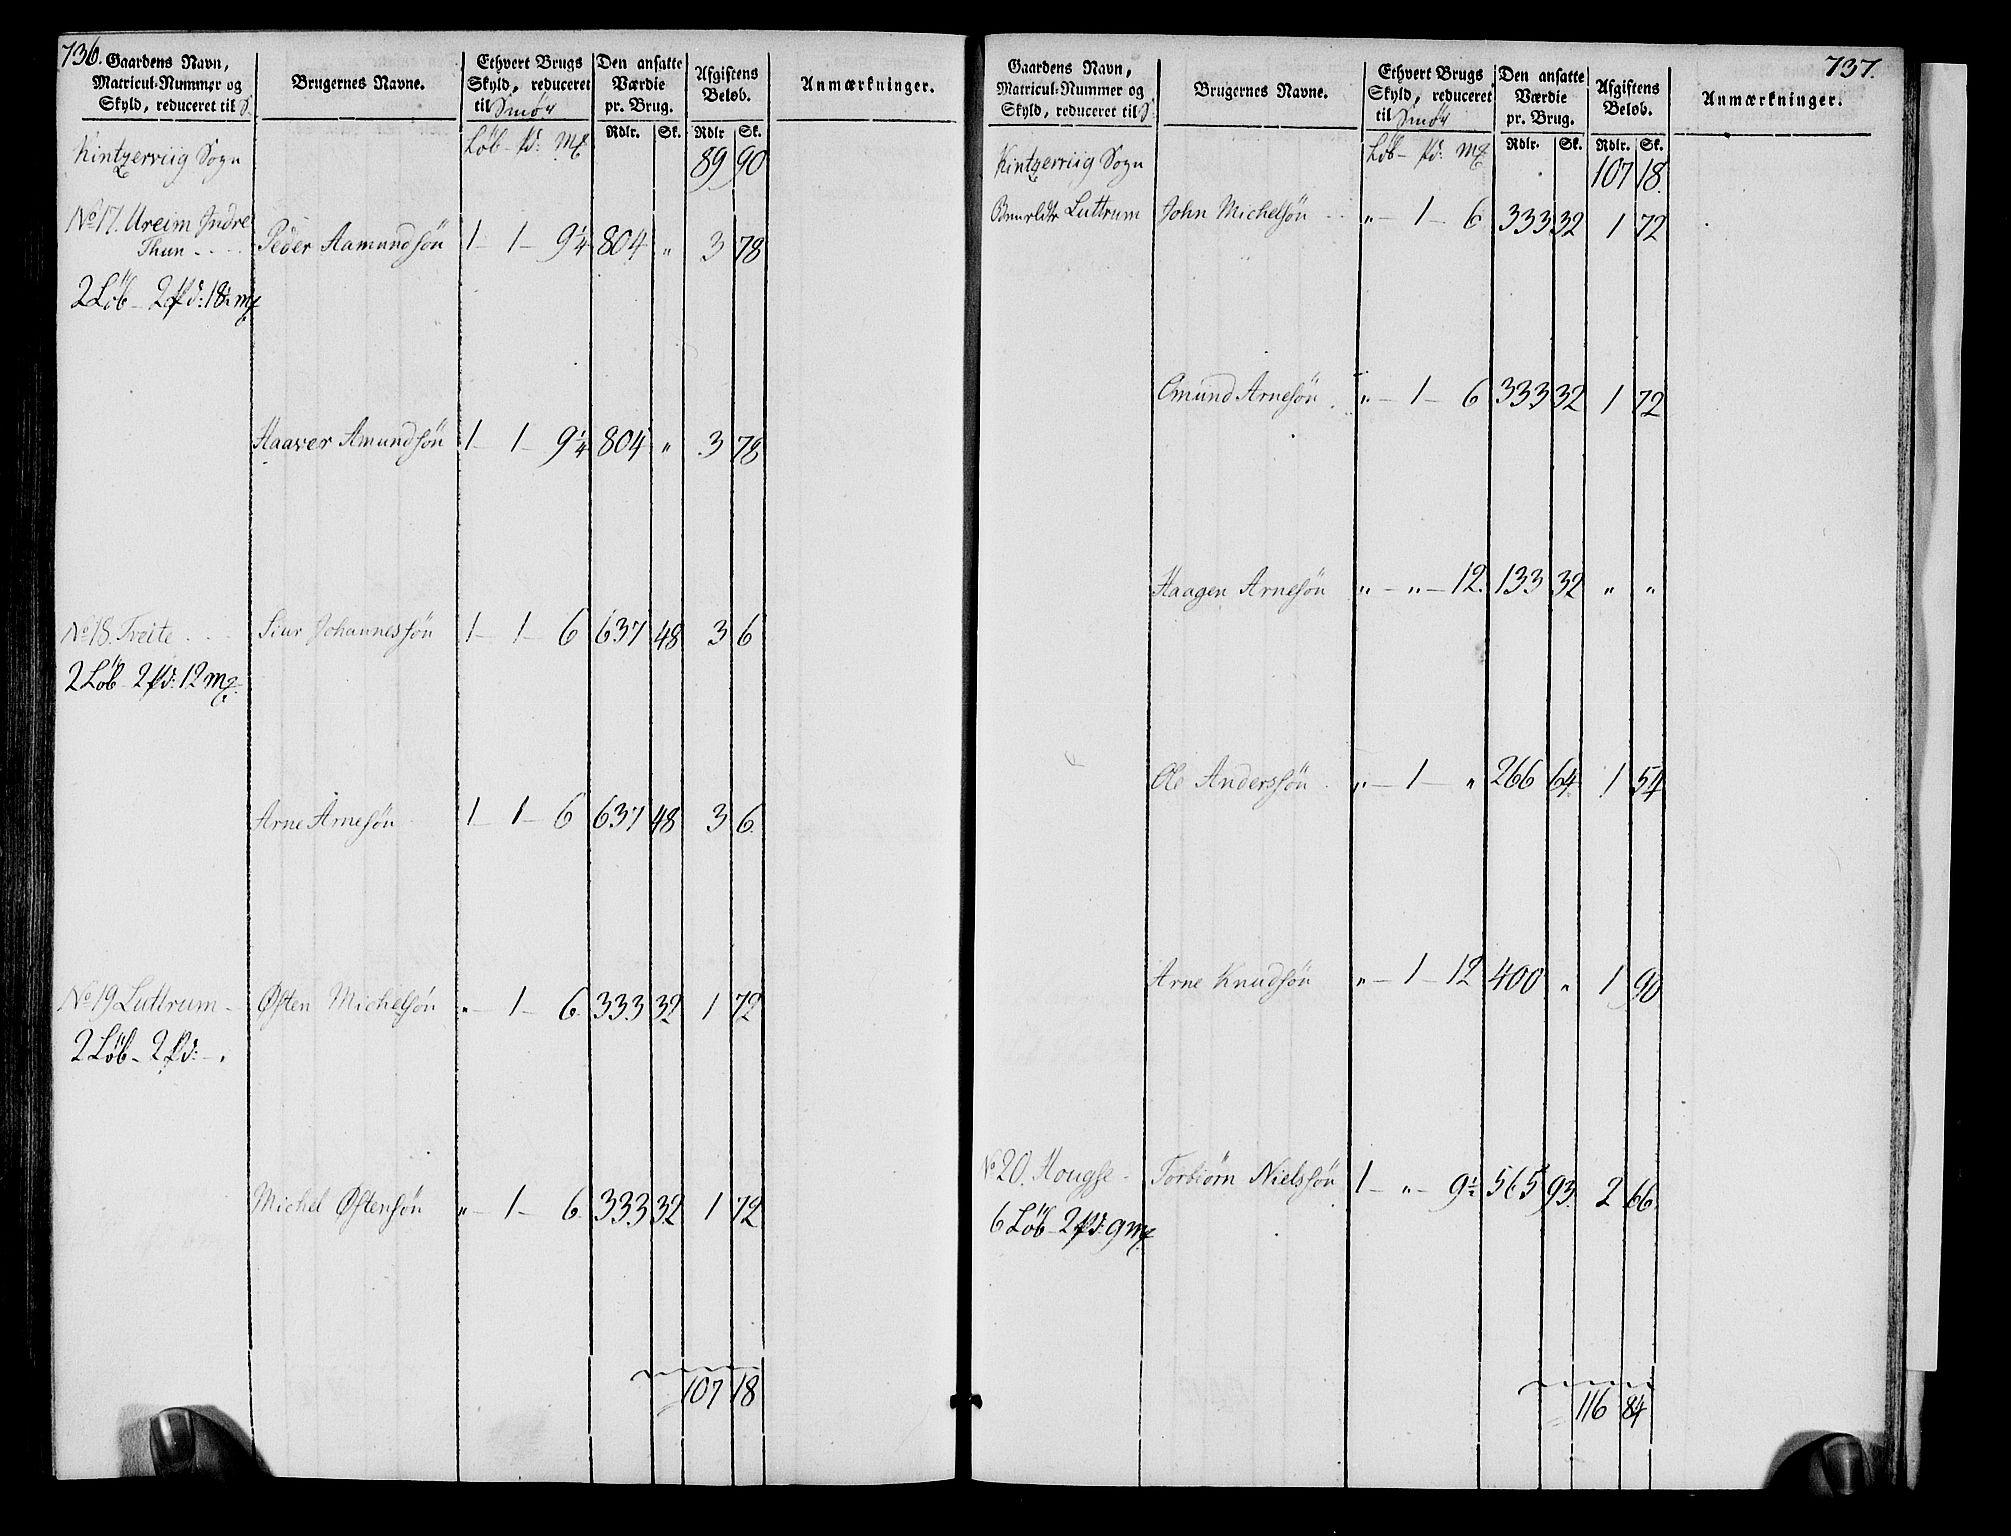 736.
Gaardens Navn, Matricul-Nummer og Skyld, reduceret til S.
Brugernes Navne.
Ethvert Brugs Skyld, reduceret til Smör
Den ansatte Værdie pr. Brug.
Afgiftens Beløb.
Anmærkninger.
Rdlr. Sk. Rdlr Sk.
Kintzerviig Sogn Löb - Pd: Mk 89 90
No 17. Ureim Indre
Thun . . . Peder Aamundsön 1 - 1 - 9¼ 804 " 3 78
2 Löb - 2 Pd: 18½ mk
Haaver Amundsön 1 - 1 - 9¼ 804 " 3 78
No 18. Tveite . . . Siur Johannessön 1 - 1 - 6 637 48 3 6
2 Löb - 2 Pd: 12 mk.
Arne Arnesön 1 - 1 - 6 637 48 3 6.
No 19 Luttrum - Østen Michelsön " - 1 - 6. 333 32 1 72
2 Löb - 2 Pd: - "
Michel Østensön " - 1 - 6. 333 32 1 72
107 18
737.
Gaardens Navn, Matricul-Nummer og Skyld, reduceret til S.
Brugernes Navne.
Ethvert Brugs Skyld, reduceret til Smör
Den ansatte Værdie pr. Brug.
Afgiftens Beløb.
Anmærkninger.
Rdlr. Sk. Rdlr. Sk.
Kintzerviig Sogn Löb - Pd: Mk 107 18.
Luttrum John Michelsön " - 1 - 6 333 32 1 72
Omund Arnesön . " - 1 - 6 333 32 1 72
Haagen Arnesön " - " - 12. 133 32 " "
Ole Anderssön . " - 1 - " 266 64 1 54
Arne Knudsön " - 1 - 12 400 " 1 90
No 20. Hougse - Torbiörn Nielssön 1 - " - 9½ 565 93. 2 66.
6 Löb - 2 Pd: 9 mk.
116 84